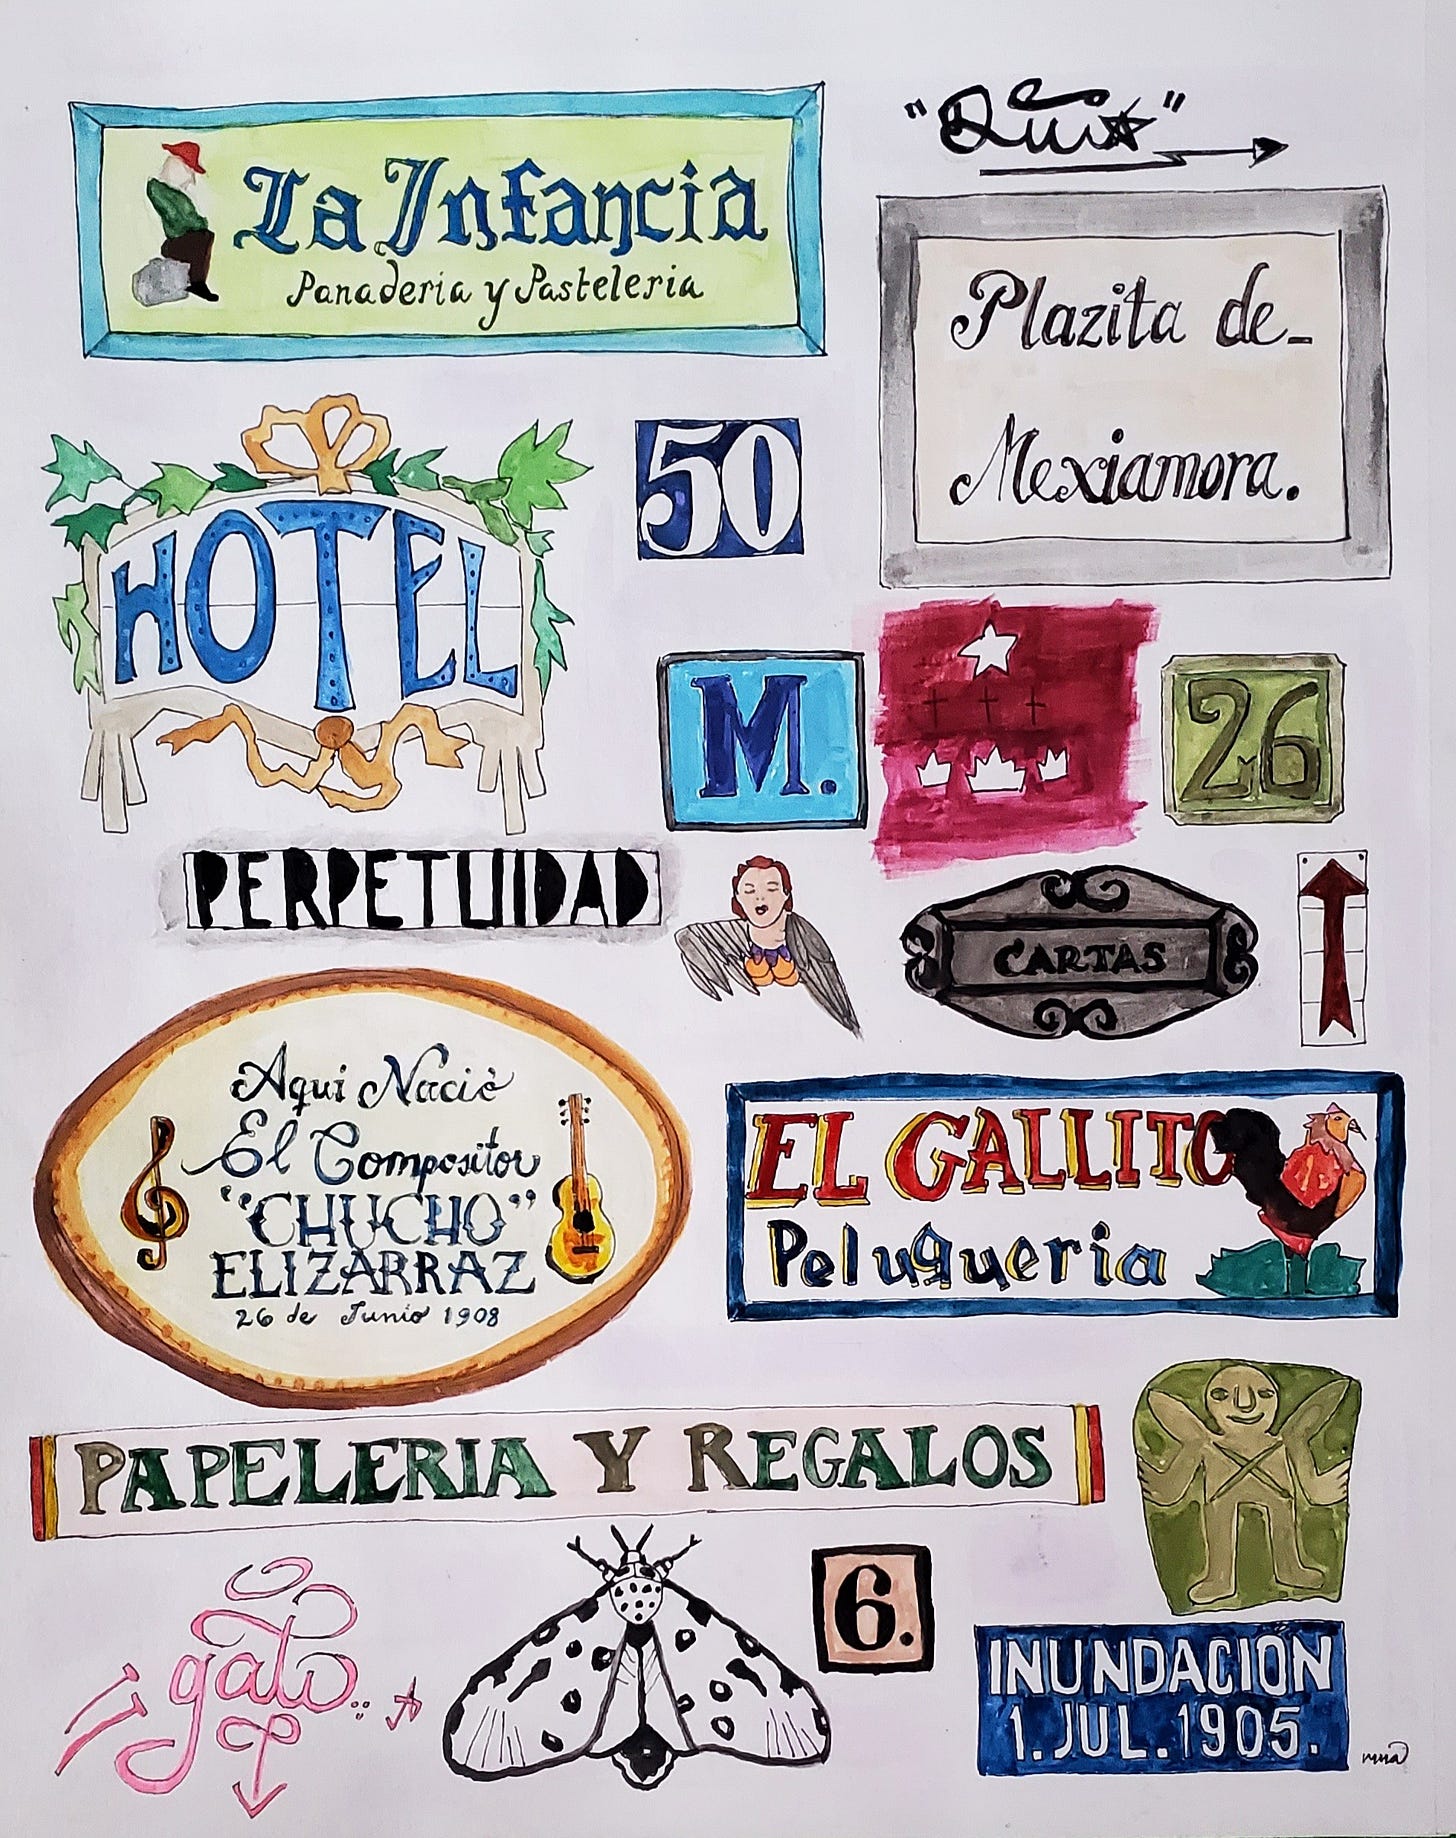 La Infancia
Panaderia y Pasteleria
Plazita de_
Mexiamora.
HOTEL
50
M.
26
PERPETUIDAD
CARTAS
Aqui Nació
El Compositor
"CHUCHO"
ELIZARRAZ
26 de Junio 1908
EL GALLITO
Peluqueria
PAPELERIA Y REGALOS
gato
6.
INUNDACIÓN
1. JUL. 1905.